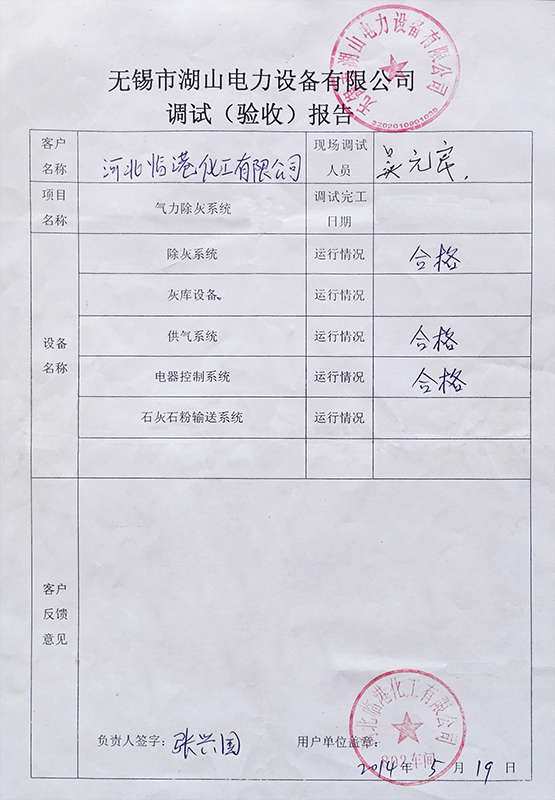 无锡市湖山电力设备有限公司
调试（验收）报告
无锡市湖山电力设备有限公司
3202010901038
客户名称 河北临港化工有限公司 现场调试人员
项目名称 气力除灰系统 调试完工日期
设备名称
除灰系统 运行情况 合格
灰库设备 运行情况
供气系统 运行情况 合格
电器控制系统 运行情况 合格
石灰石粉输送系统 运行情况
客户反馈意见
河北临港化工有限公司
802车间
负责人签字：张兴国 用户单位盖章：
2014年5月19日